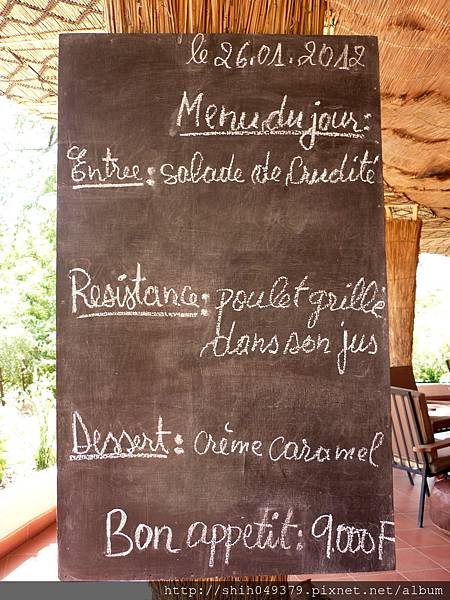 le 26.01.2012
Menu du jour:
Entree: salade de Crudité
Resistance: poulet grillé
dans son jus
Dessert: crème caramel
Bon appetit: 9.000F
http://shih049379.pixnet.net/album